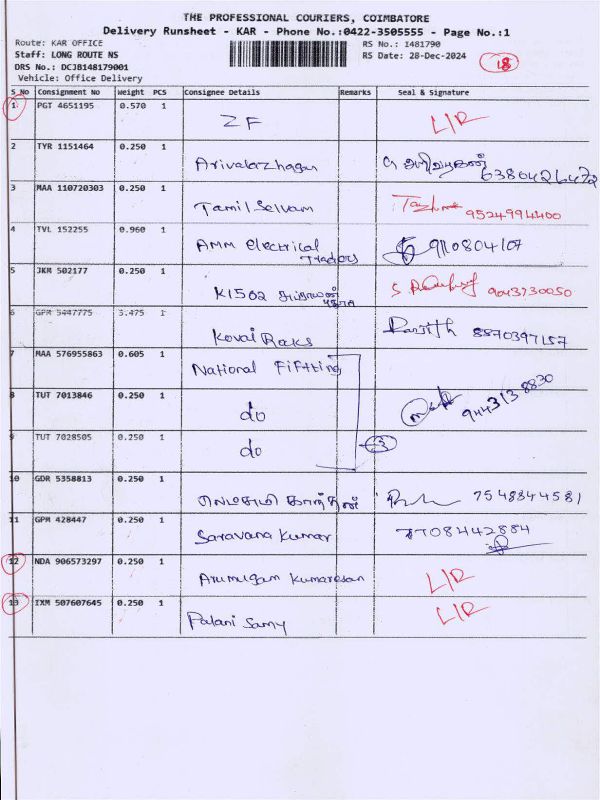 THE PROFESSIONAL COURIERS, COIMBATORE
Delivery Runsheet - KAR - Phone No.:0422-3505555 - Page No.:1
Route: KAR OFFICE
Staff: LONG ROUTE NS
DRS No.: DCJB148179001
Vehicle: Office Delivery
RS No.: I481790
RS Date: 28-Dec-2024
18
S No Consignment No Weight PCS Consignee Details Remarks Seal & Signature
1 PGT 4651195 0.570 1 ZF L/R
2 TYR 1151464 0.250 1 Arivalazhagan 6380426472
3 MAA 110720303 0.250 1 Tamil Selvam 9524994400
4 TVL 152255 0.960 1 AMM Electrical Traders 9110804107
5 JKM 502177 0.250 1 K1502 9043730050
6 GPM 5447775 3.475 1 Kovai Raks Ranjith 8870397157
7 MAA 576955863 0.605 1 National Fiftting
8 TUT 7013846 0.250 1 do 9443138830
9 TUT 7028505 0.250 1 do 3
10 GDR 5358813 0.250 1 7548844581
11 GPM 428447 0.250 1 Saravana Kumar 7708442884
12 NDA 906573297 0.250 1 Arumugam Kumaresan L/R
13 IXM 507607645 0.250 1 Palani Samy L/R